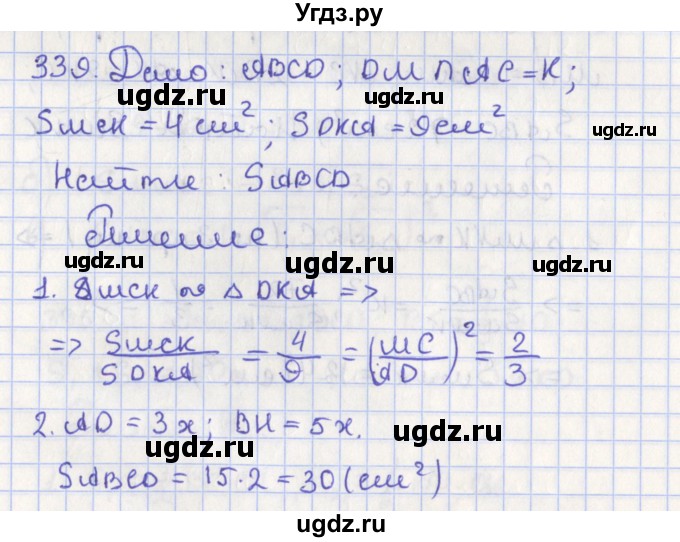 Угдз.ру
339. Дано: ABCD; DM ∩ AC = K;
ugdz.ru ugdz.ru
SMCK = 4 см²; SDKA = 9 см²
ugdz.ru
Найти: SABCD
ugdz.ru ugdz.ru
Решение:
ugdz.ru ugdz.ru
1. ΔMCK ~ ΔDKA =>
ugdz.ru
=> SMCK/SDKA = 4/9 = (MC/AD)² = 2/3
ugdz.ru ugdz.ru
2. AD = 3x; BH = 5x.
ugdz.ru ugdz.ru
SABCD = 15·2 = 30 (см²)
ugdz.ru